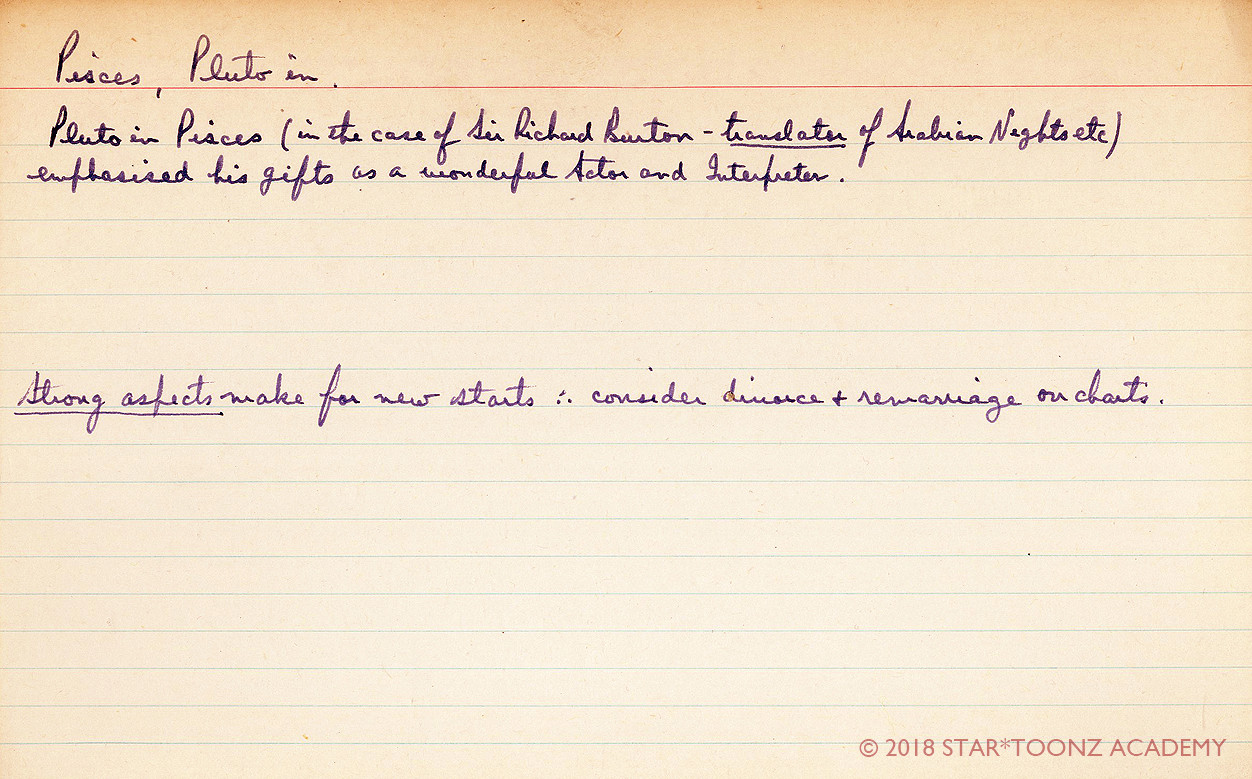 Pisces, Pluto in.
Pluto in Pisces (in the case of Sir Richard Burton - translater of Arabian Nights etc)
emphasised his gifts as a wonderful Actor and Interpreter.
Strong aspects make for new starts ∴ consider divorce + remarriage on charts.
© 2018 STAR*TOONZ ACADEMY